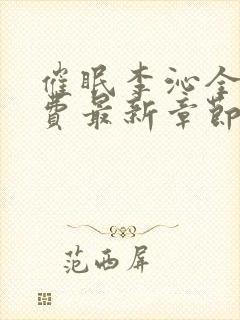 催眠李沁全
费最新章节
范西屏